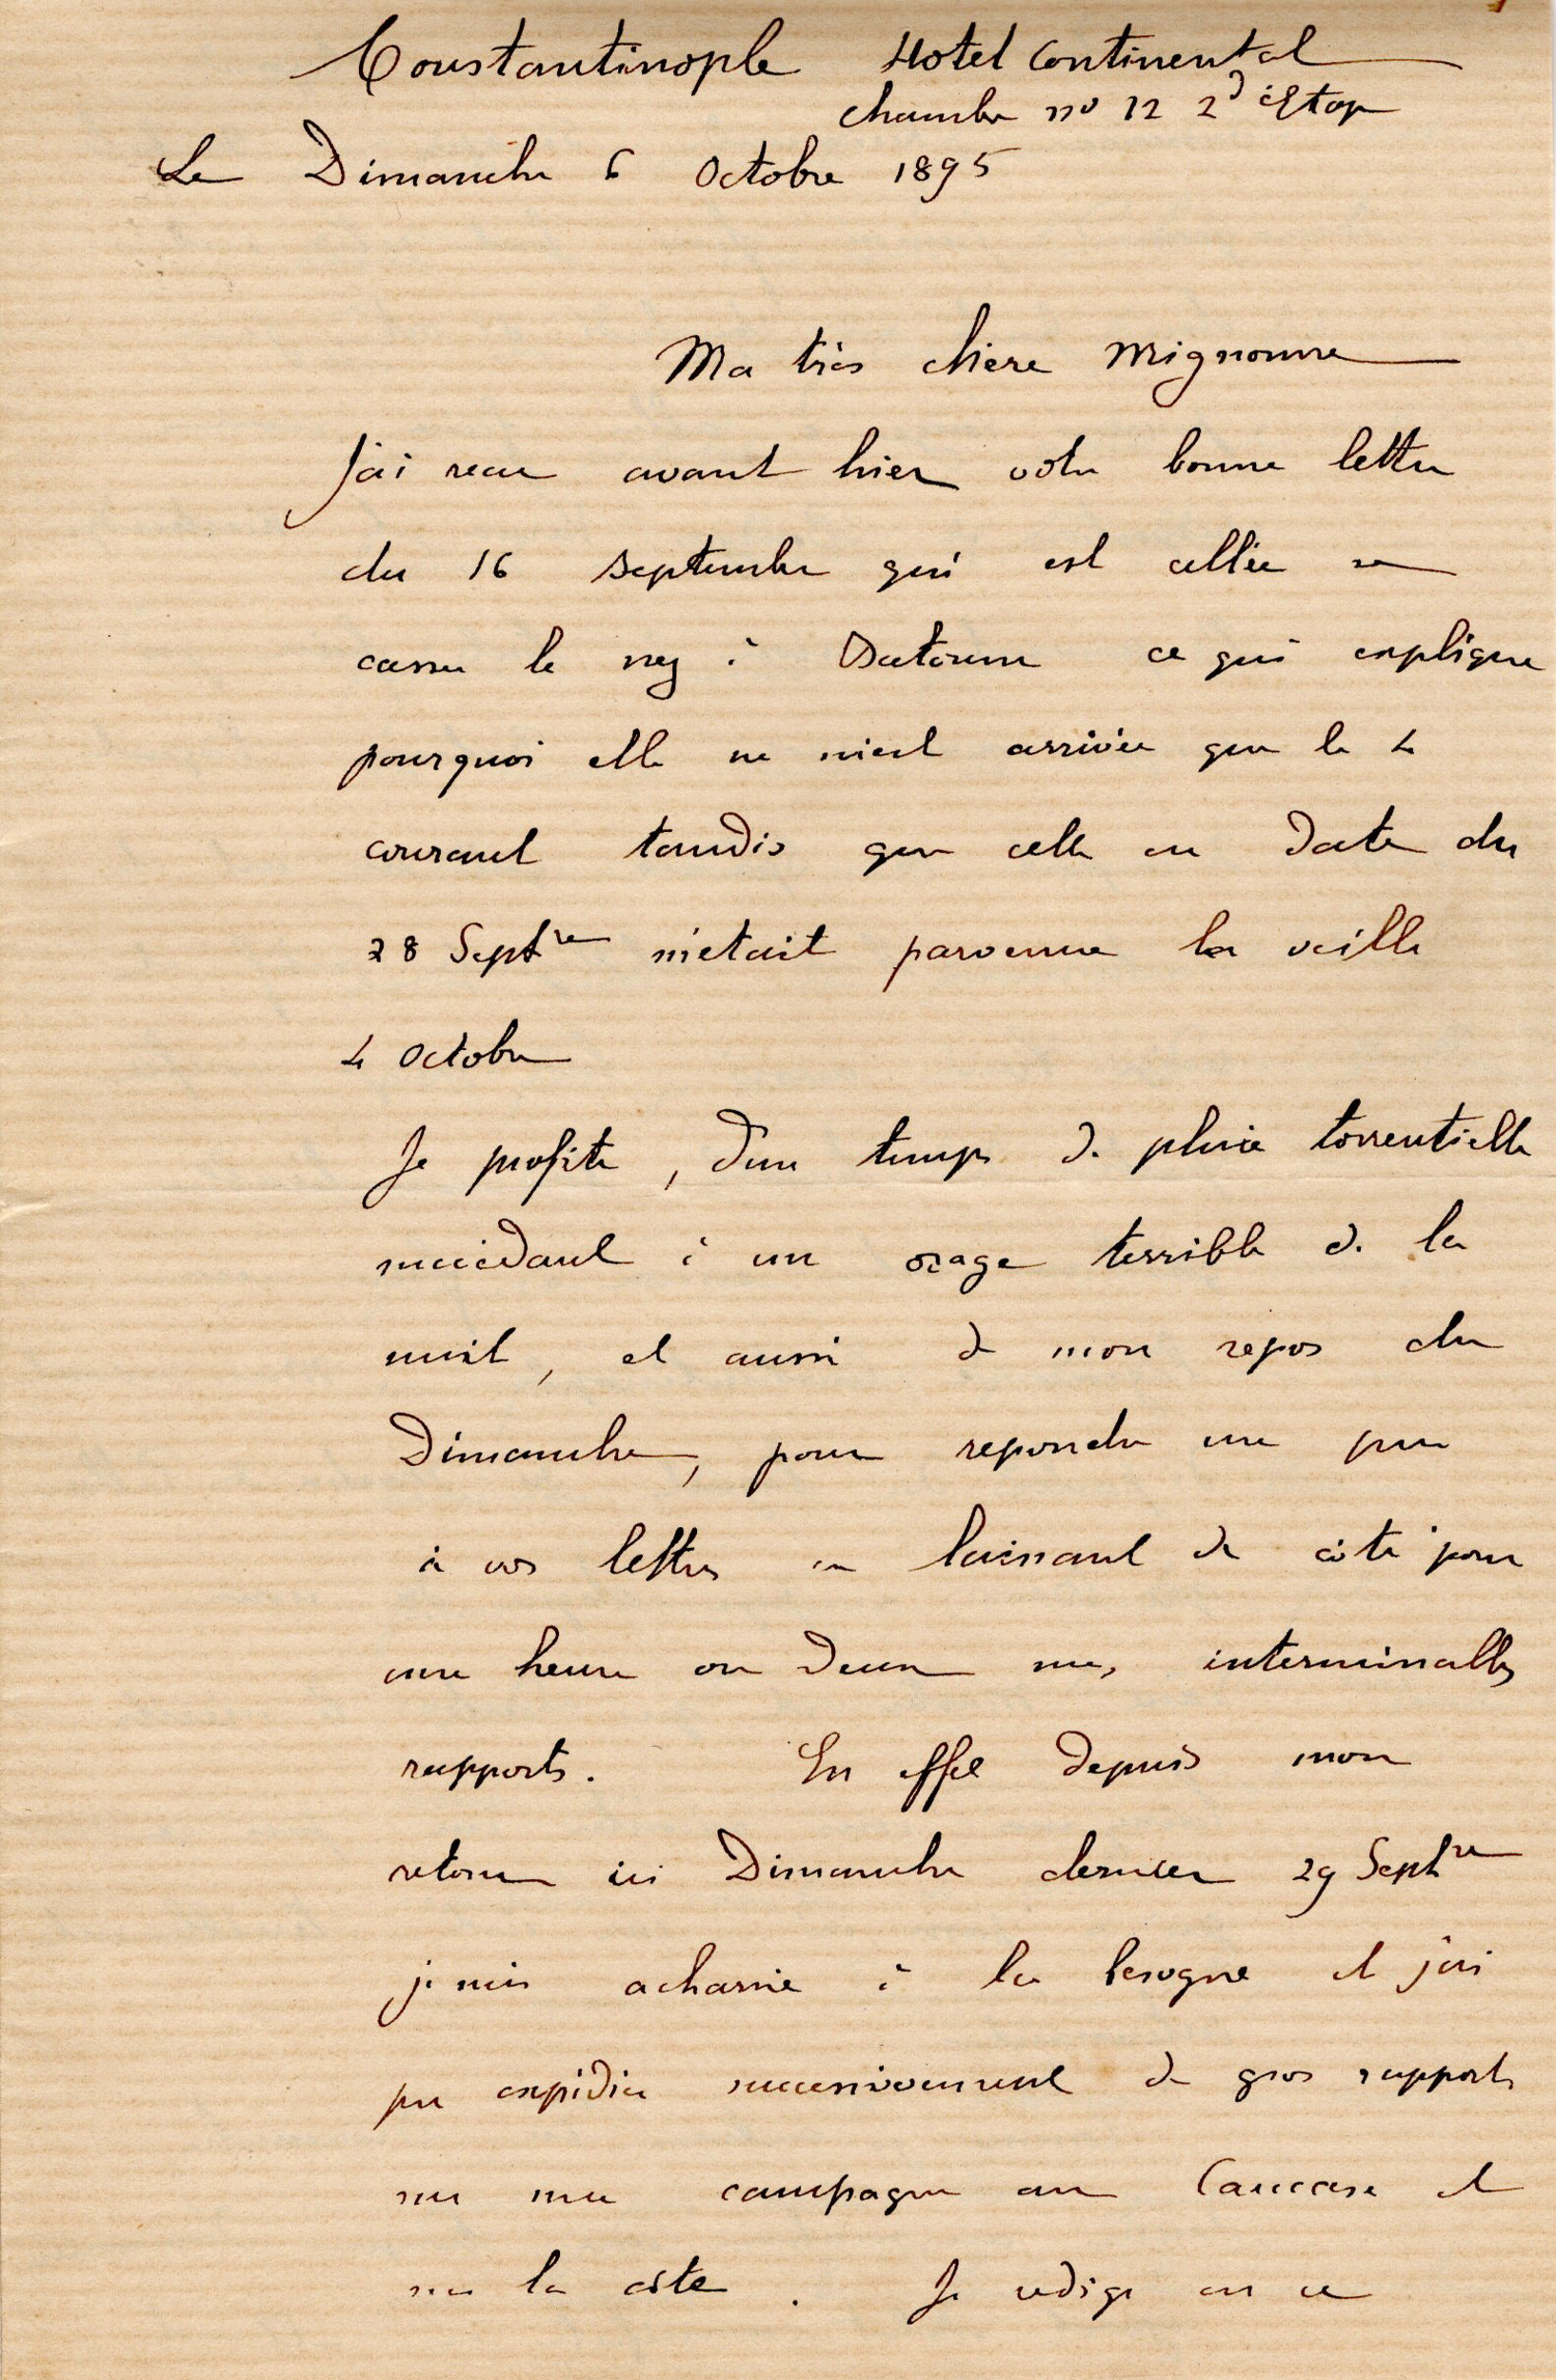 Constantinople Hotel Continental
Chambre no 12 2d Etage
Le Dimanche 6 Octobre 1895
Ma très chère Mignonne
J'ai reçu avant hier votre bonne lettre
du 16 Septembre qui est allée se
casser le nez à Batoum ce qui explique
pourquoi elle ne m'est arrivée que le 4
courant tandis que celle en date du
28 Septre m'etait parvenue la veille
4 Octobre
Je profite, d'un temps de pluie torrentielle
succédant à un orage terrible de la
nuit, et aussi de mon repos du
Dimanche, pour repondre un peu
à vos lettres en laissant de côté pour
une heure ou deux mes interminables
rapports. En effet depuis mon
retour ici Dimanche dernier 29 Septre
je suis acharné à la besogne et j'ai
pu expédier successivement de gros rapports
sur ma campagne au Caucase et
sur la côte. Je rédige en ce